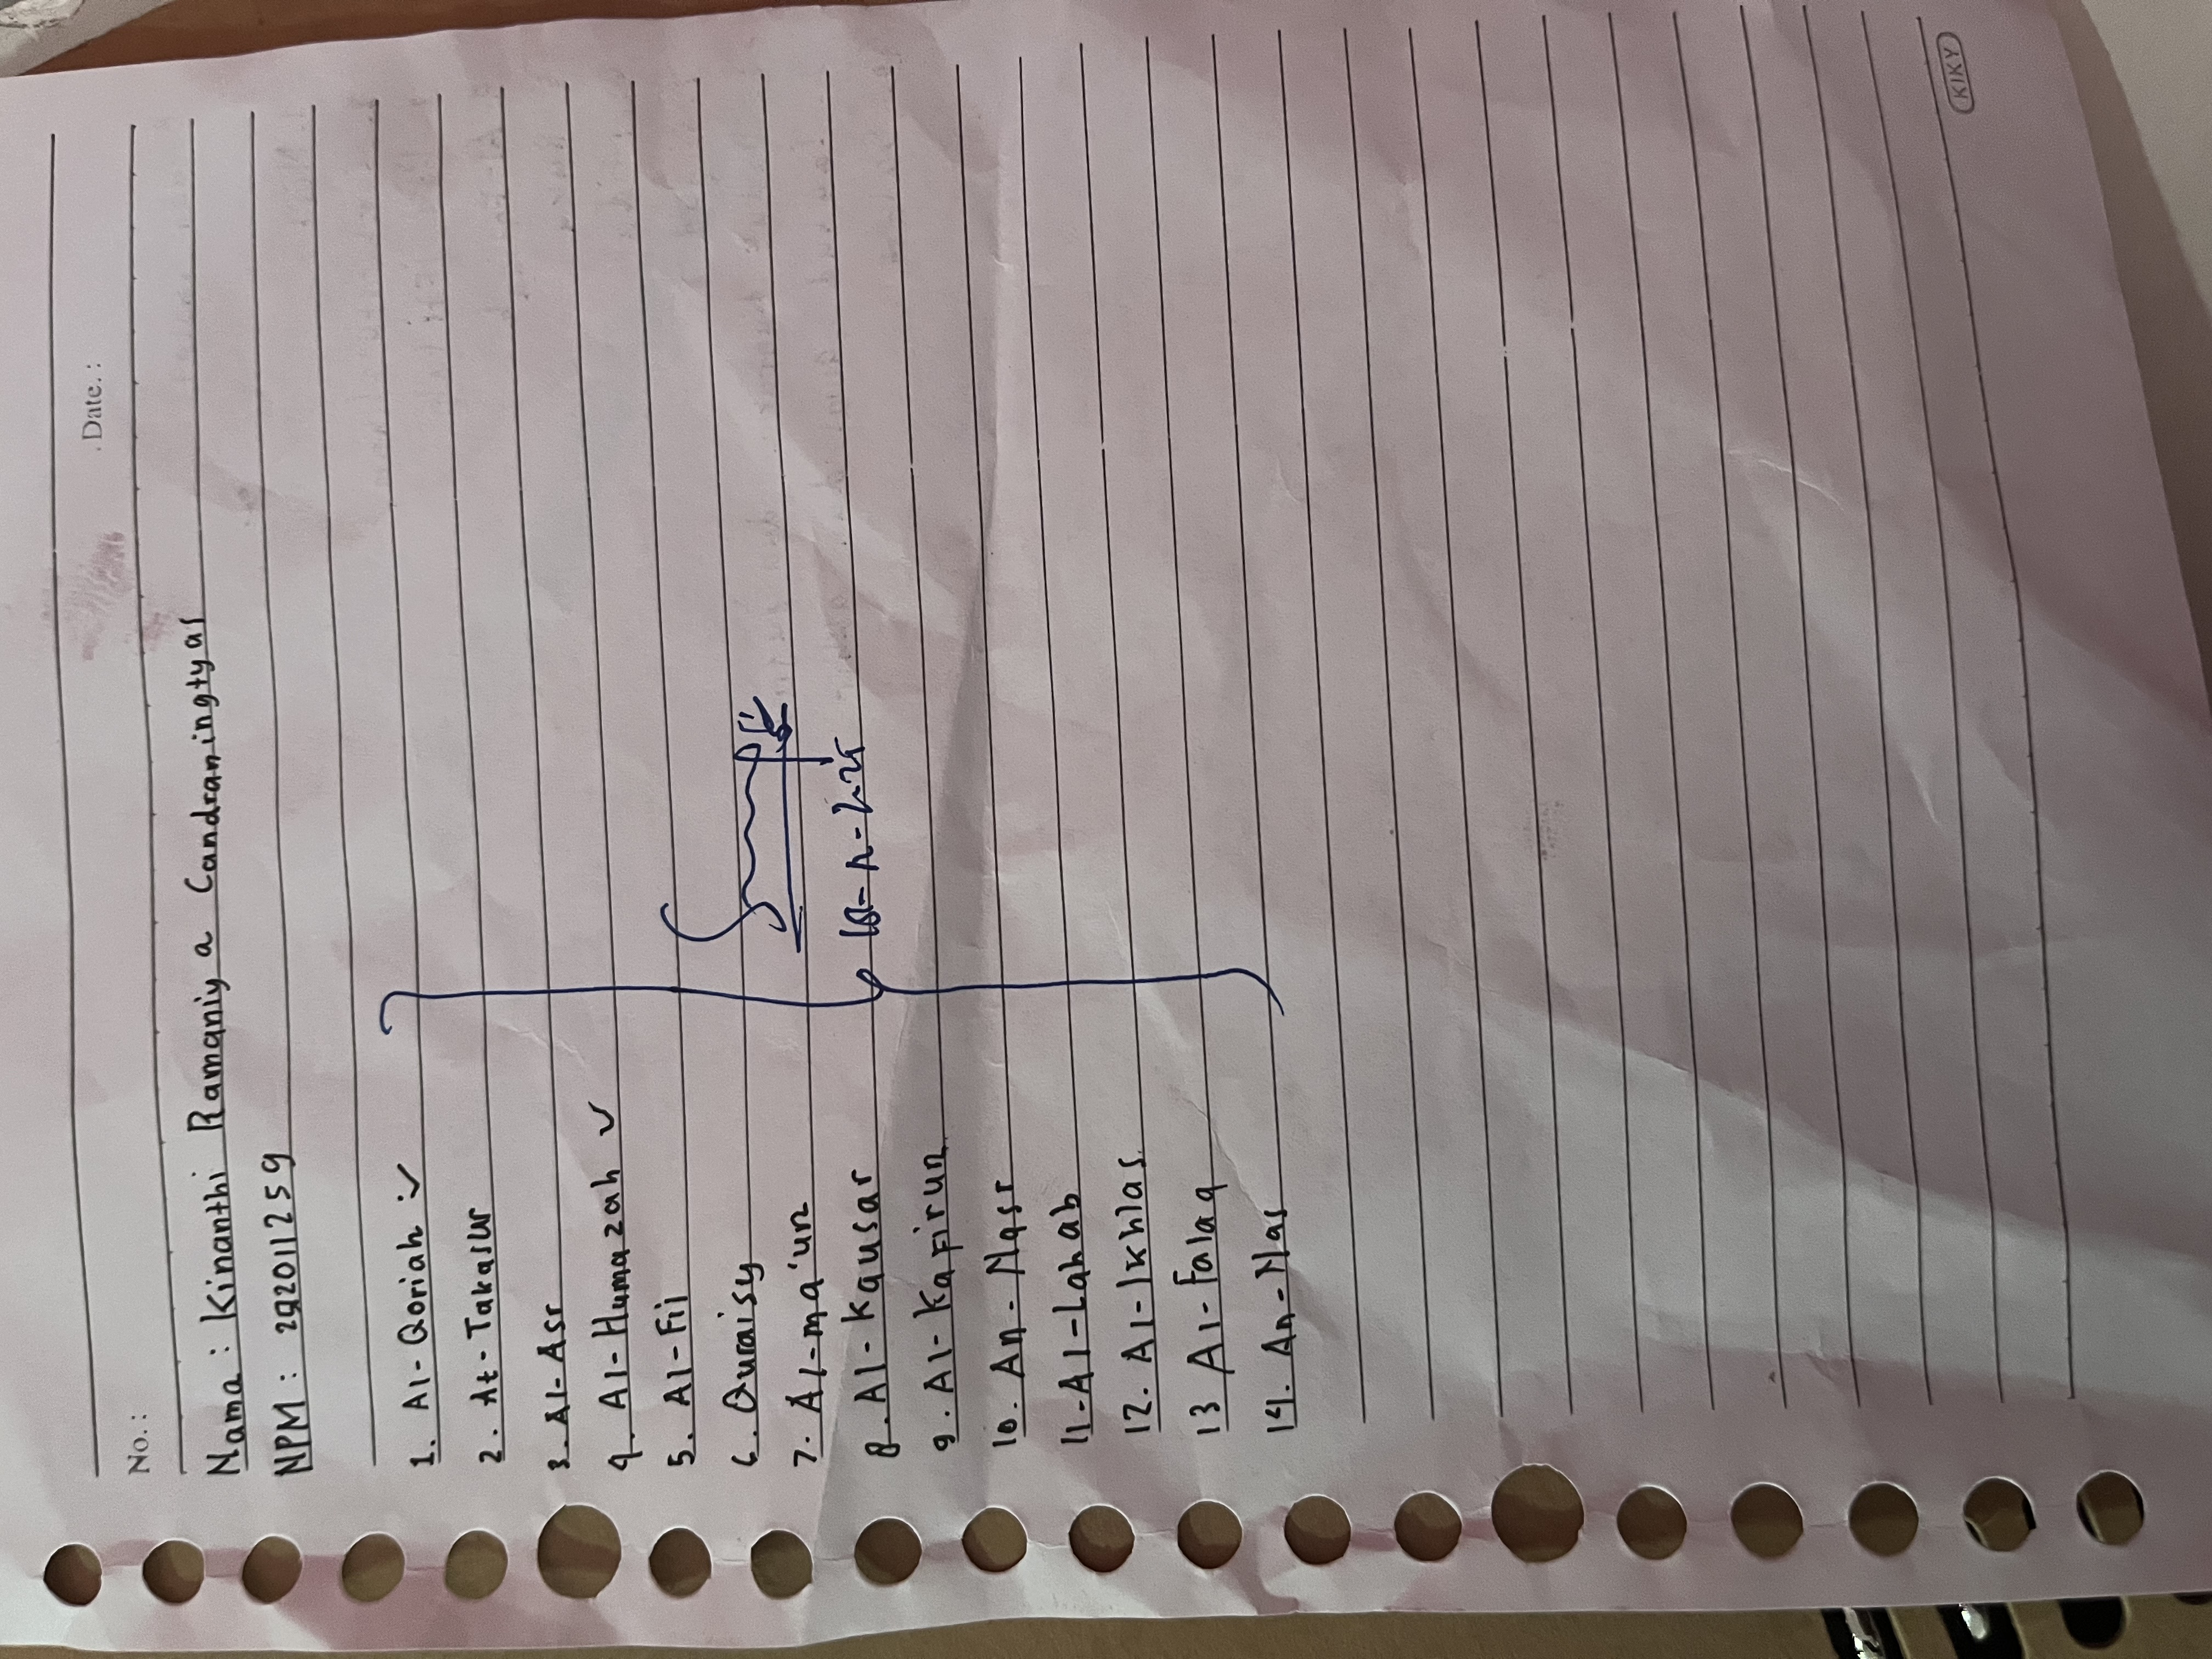 No.:
Date.:
Nama : Kinanthi Ramaniya Candraningtyas
NPM :
1. Al-Qoriah :✓
2. At-Takasur
3. Al-Asr
4. Al-Humazah ✓
5. Al-Fil
6. Quraisy
7. Al-ma'un
8. Al-Kausar
9. Al-Kafirun
10. An-Nasr
11-Al-Lahab
12. Al-Ikhlas
13 Al-Falaq
14. An-Nas
KIKY